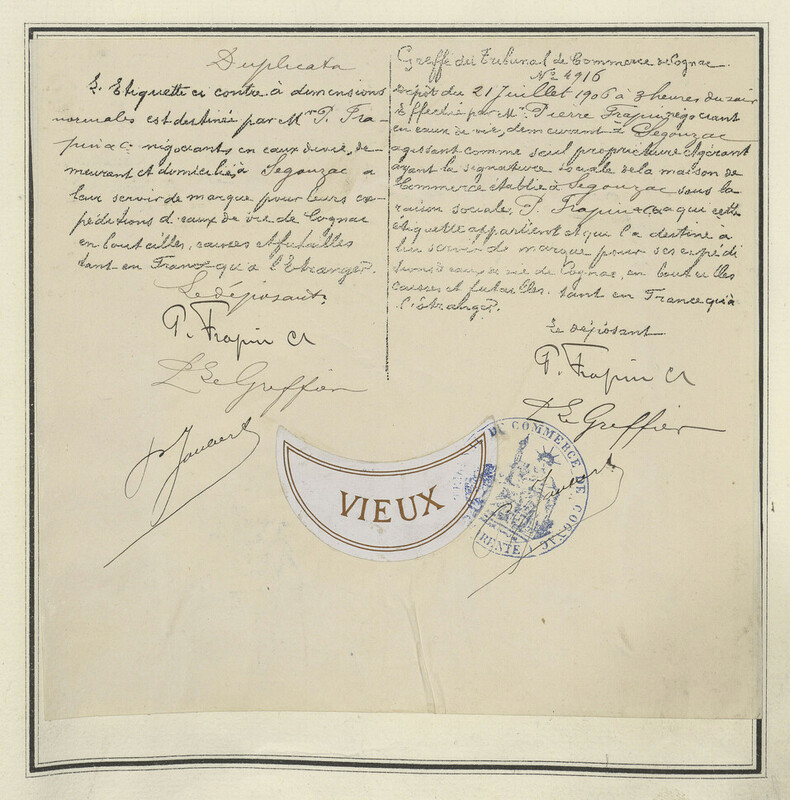 Duplicata
L'Etiquette ci contre à dimensions
normales est destinée par Mr P. Fra-
pin & C. négociants en eaux de vie, de-
meurant et domiciliés à Segonzac a
leur servir de marque pour leurs ex-
péditions d'eaux de vie de Cognac
en bouteilles, caisses et futailles
tant en France qu'à l'Etranger.
Le déposant,
P. Frapin &
Le Greffier
Joubert
Greffe du Tribunal de Commerce de Cognac.
No 4916
Dépôt du 21 Juillet 1906 à 3 heures du soir
Effectué par Mr. Pierre Frapin négociant
en eaux de vie, demeurant à Segonzac
agissant comme seul propriétaire et gérant
ayant la signature sociale de la maison de
Commerce établie à Segonzac sous la
raison sociale, P. Frapin & Co a qui cette
étiquette appartient et qui l'a destiné à
lui servir de marque pour ses expédi
tions d'eaux de vie de Cognac, en bouteilles
caisses et futailles, tant en France qu'à
l'étranger.
Le déposant
P. Frapin &
Le Greffier
Joubert
VIEUX
DU COMMERCE DE COGNAC